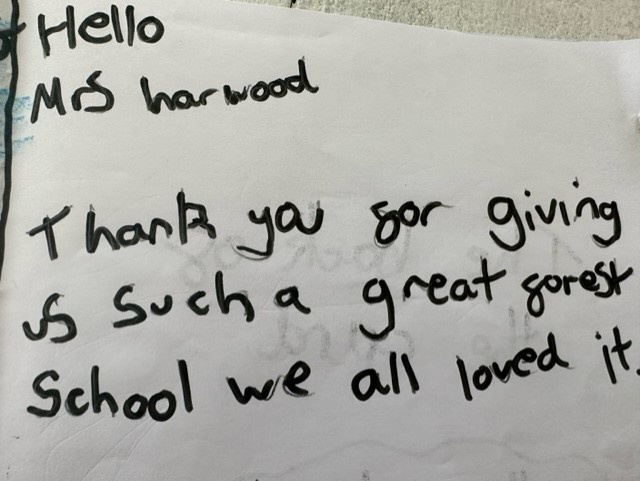 Hello
Mrs harwood
Thank you for giving
us such a great forest
School we all loved it.